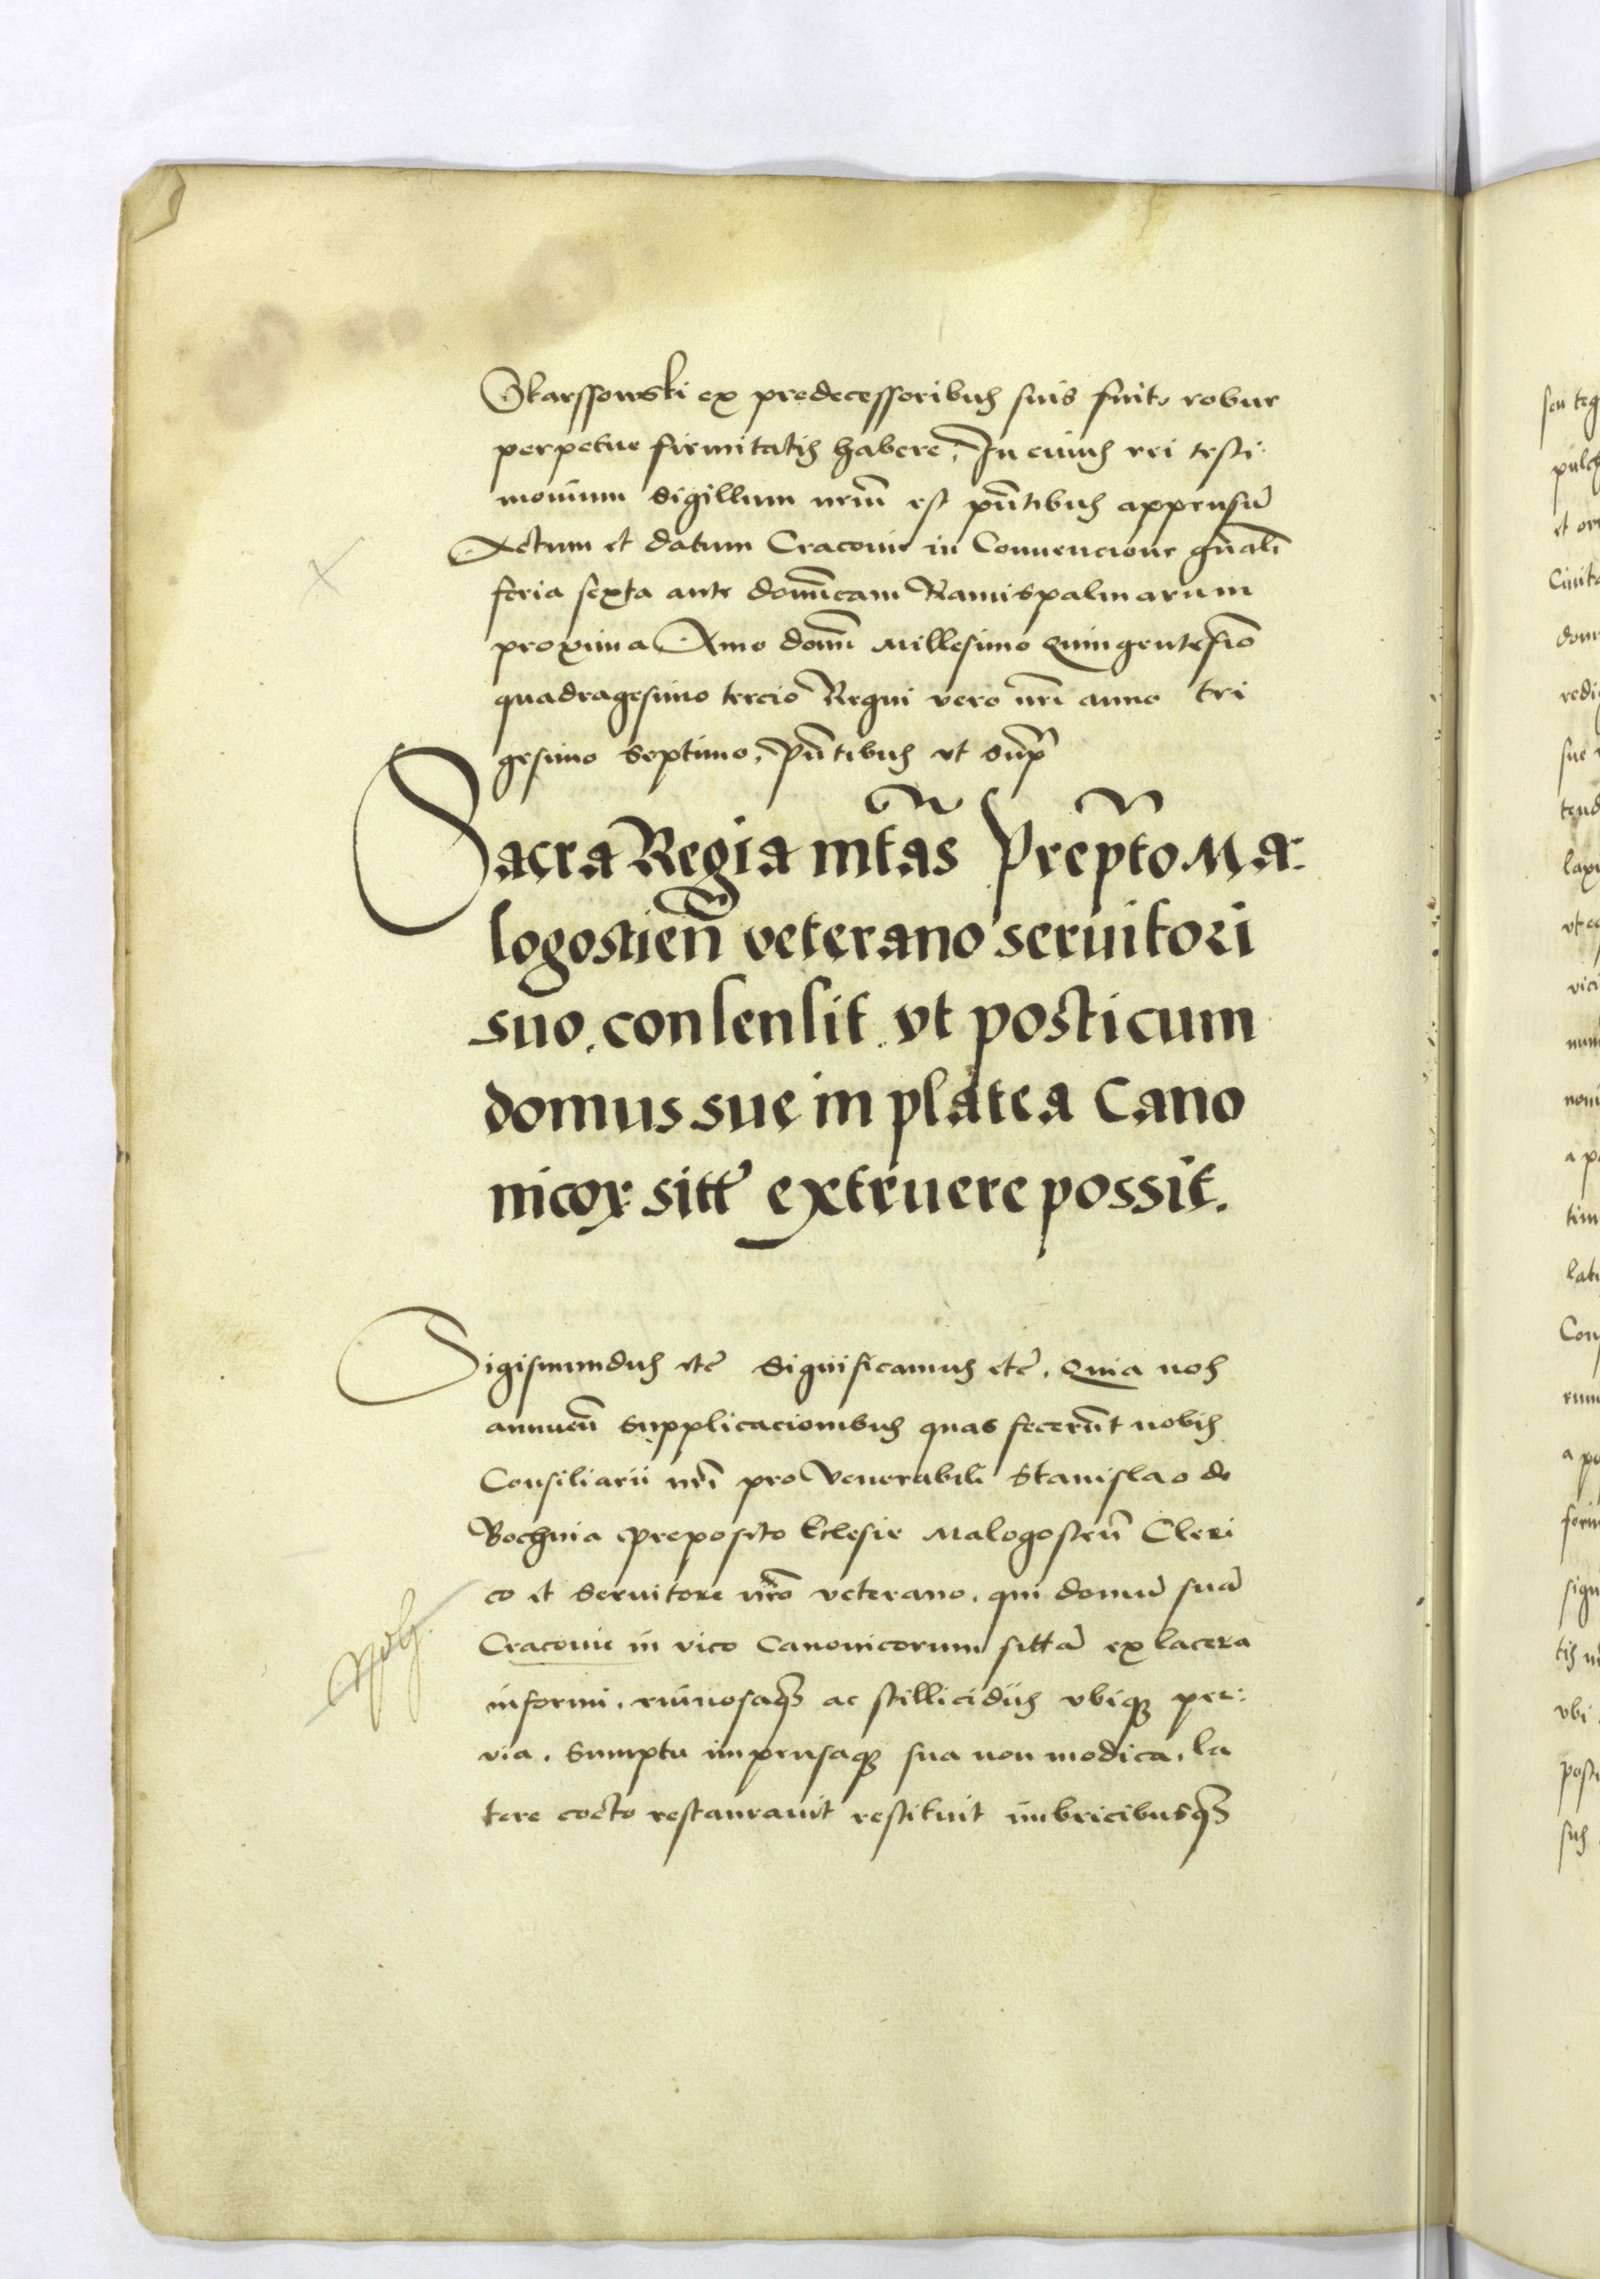 Skarssowski ex predecessoribus suis fuit, robur
perpetue firmitatis habere, In cuius rei testi:
monium sigillum nrūm est pn̄tibus appensū
Actum et datum Cracovie in Convencione gn̄ali
feria sexta ante domīcam Ramispalmarum
proxima Anno domī Millesimo Quingentesīo
quadragesimo tercio Regni vero nrī anno tri
gesimo Septimo, Pn̄tibus vt supr̄
Sacra Regia mtās Prepto Ma:
logostien̄ veterano seruitori
suo. consensit. vt posticum
domus sue in platea Cano
nicoꝝ sitt̄ extruere possit.
Sigismundus etc̄ Significamus etc̄. Quia nos
annuen̄ Supplicacionibus quas fecerūt nobis
Consiliarii nrī pro Venerabili Stanislao de
Bochnia preposito Eclesie Malogosten̄ Cleri
co et Seruitore nrō veterano. qui domū suā
Cracovie in vico Canonicorum sittā ex lacera
informi. ruinosaqꝫ ac stillicidiis vbiqꝫ per:
via. Sumptu impensaqꝫ sua non modica. la
tere cocto restaurauit restituit imbricibusqꝫ